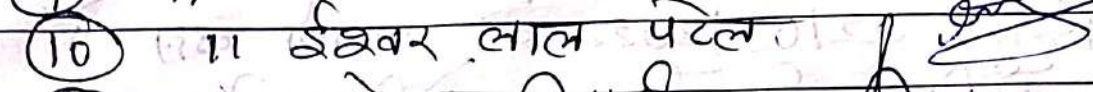 10 11 ईश्वर लाल पटेल